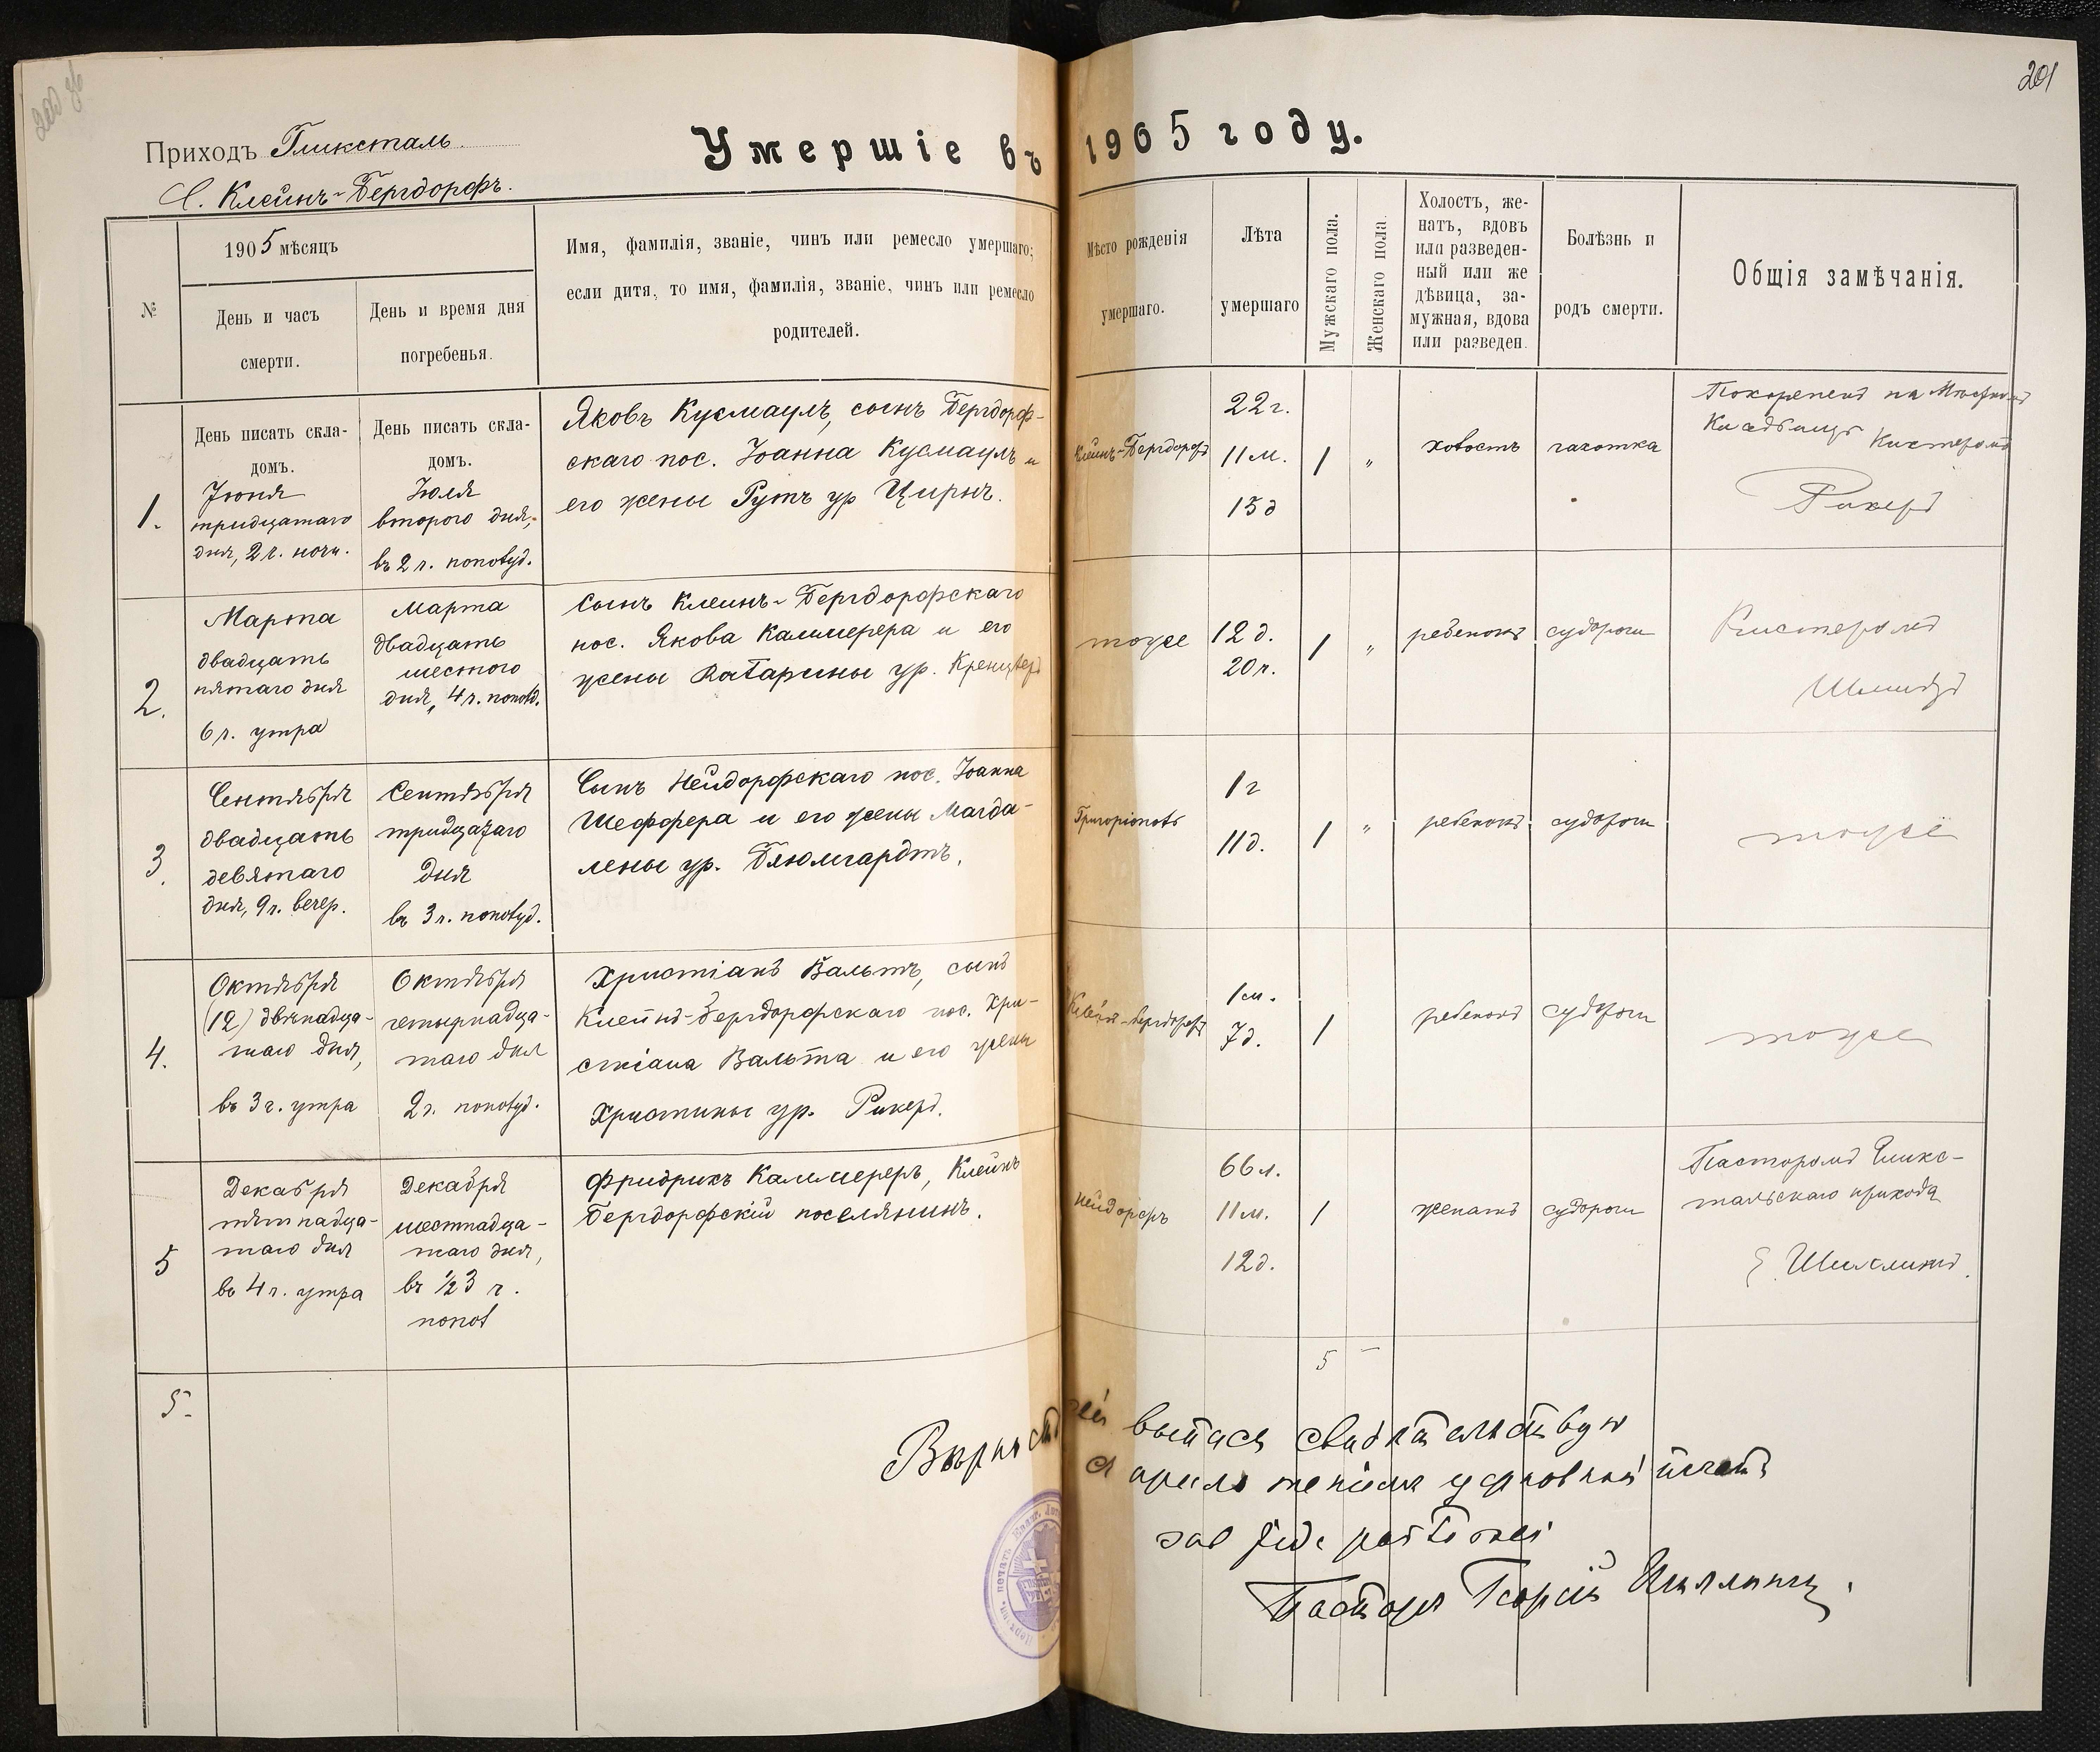 201
Приходъ Гликсталь
Умершіе въ 1905 году.
С. Клейнъ-Бергдорфъ.
№
1905 мѣсяцъ
День и часъ
смерти.
День и время дня
погребенья.
Имя, фамилія, званіе, чинъ или ремесло умершаго;
если дитя, то имя, фамилія, званіе, чинъ или ремесло
родителей.
Мѣсто рожденія
умершаго.
Лѣта
умершаго
Мужскаго пола.
Женскаго пола
Холостъ, же-
натъ, вдовъ
или разведен-
ный или же
дѣвица, за-
мужная, вдова
или разведен.
Болѣзнь и
родъ смерти.
Общія замѣчанія.
1.
День писать скла-
домъ.
Іюня
тридцатаго
дня, 2 ч. ночи.
День писать скла-
домъ.
Іюля
второго дня,
въ 2 ч. пополуд.
Яковъ Кусмаулъ, сынъ Бергдорф-
скаго пос. Іоанна Кусмаулъ и
его жены Рутъ ур Цирнъ.
Клейнъ-Бергдорфъ
22 г.
11 м.
15 д
1
"
холостъ
чахотка
Похороненъ на Мѣстномъ
Кладбищѣ Кистеромъ
Рикеръ
2.
Марта
двадцать
пятаго дня
6 ч. утра
Марта
двадцать
шестого
дня, 4 ч. пополд.
Сынъ Клейнъ-Бергдорфскаго
пос. Якова Каммерера и его
жены Катарины ур.
тоже
12 д.
20 ч.
1
"
ребенокъ
судороги
Кистеромъ
Шмидтъ
3.
Сентября
двадцать
девятаго
дня, 9 ч. вечер.
Сентября
тридцатаго
дня
въ 3 ч. пополуд.
Сынъ Нейдорфскаго пос. Іоанна
Шеффера и его жены Магда-
лены ур. Блюмгардтъ.
Григоріополь
1 г
11 д.
1
"
ребенокъ
судороги
тоже
4.
Октября
(12) двѣнадца-
таго дня,
въ 3 ч. утра
Октября
четырнадца-
таго дня
2 ч. пополуд.
Христіанъ Вальтъ, сынъ
Клейнъ-Бергдорфскаго пос. Хри-
стіана Вальта и его жены
Христины ур. Рикеръ.
Клейнъ-Бергдорфъ
1 м.
7 д.
1
ребенокъ
судороги
тоже
5
Декабря
пятнадца-
таго дня
въ 4 ч. утра
Декабря
шестнадца-
таго дня,
въ ½3 ч.
попол
Фридрихъ Каммереръ, Клейнъ
Бергдорфскій поселянинъ.
Нейдорфъ
66 л.
11 м.
12 д.
1
женатъ
судороги
Пасторомъ Гликс-
тальскаго прихода
Г. Шиллингъ.
5.
5 –
Вѣрность сей выписи свидѣтельствую
съ приложеніемъ церковной печати
Пасторъ Георгій Шиллингъ.